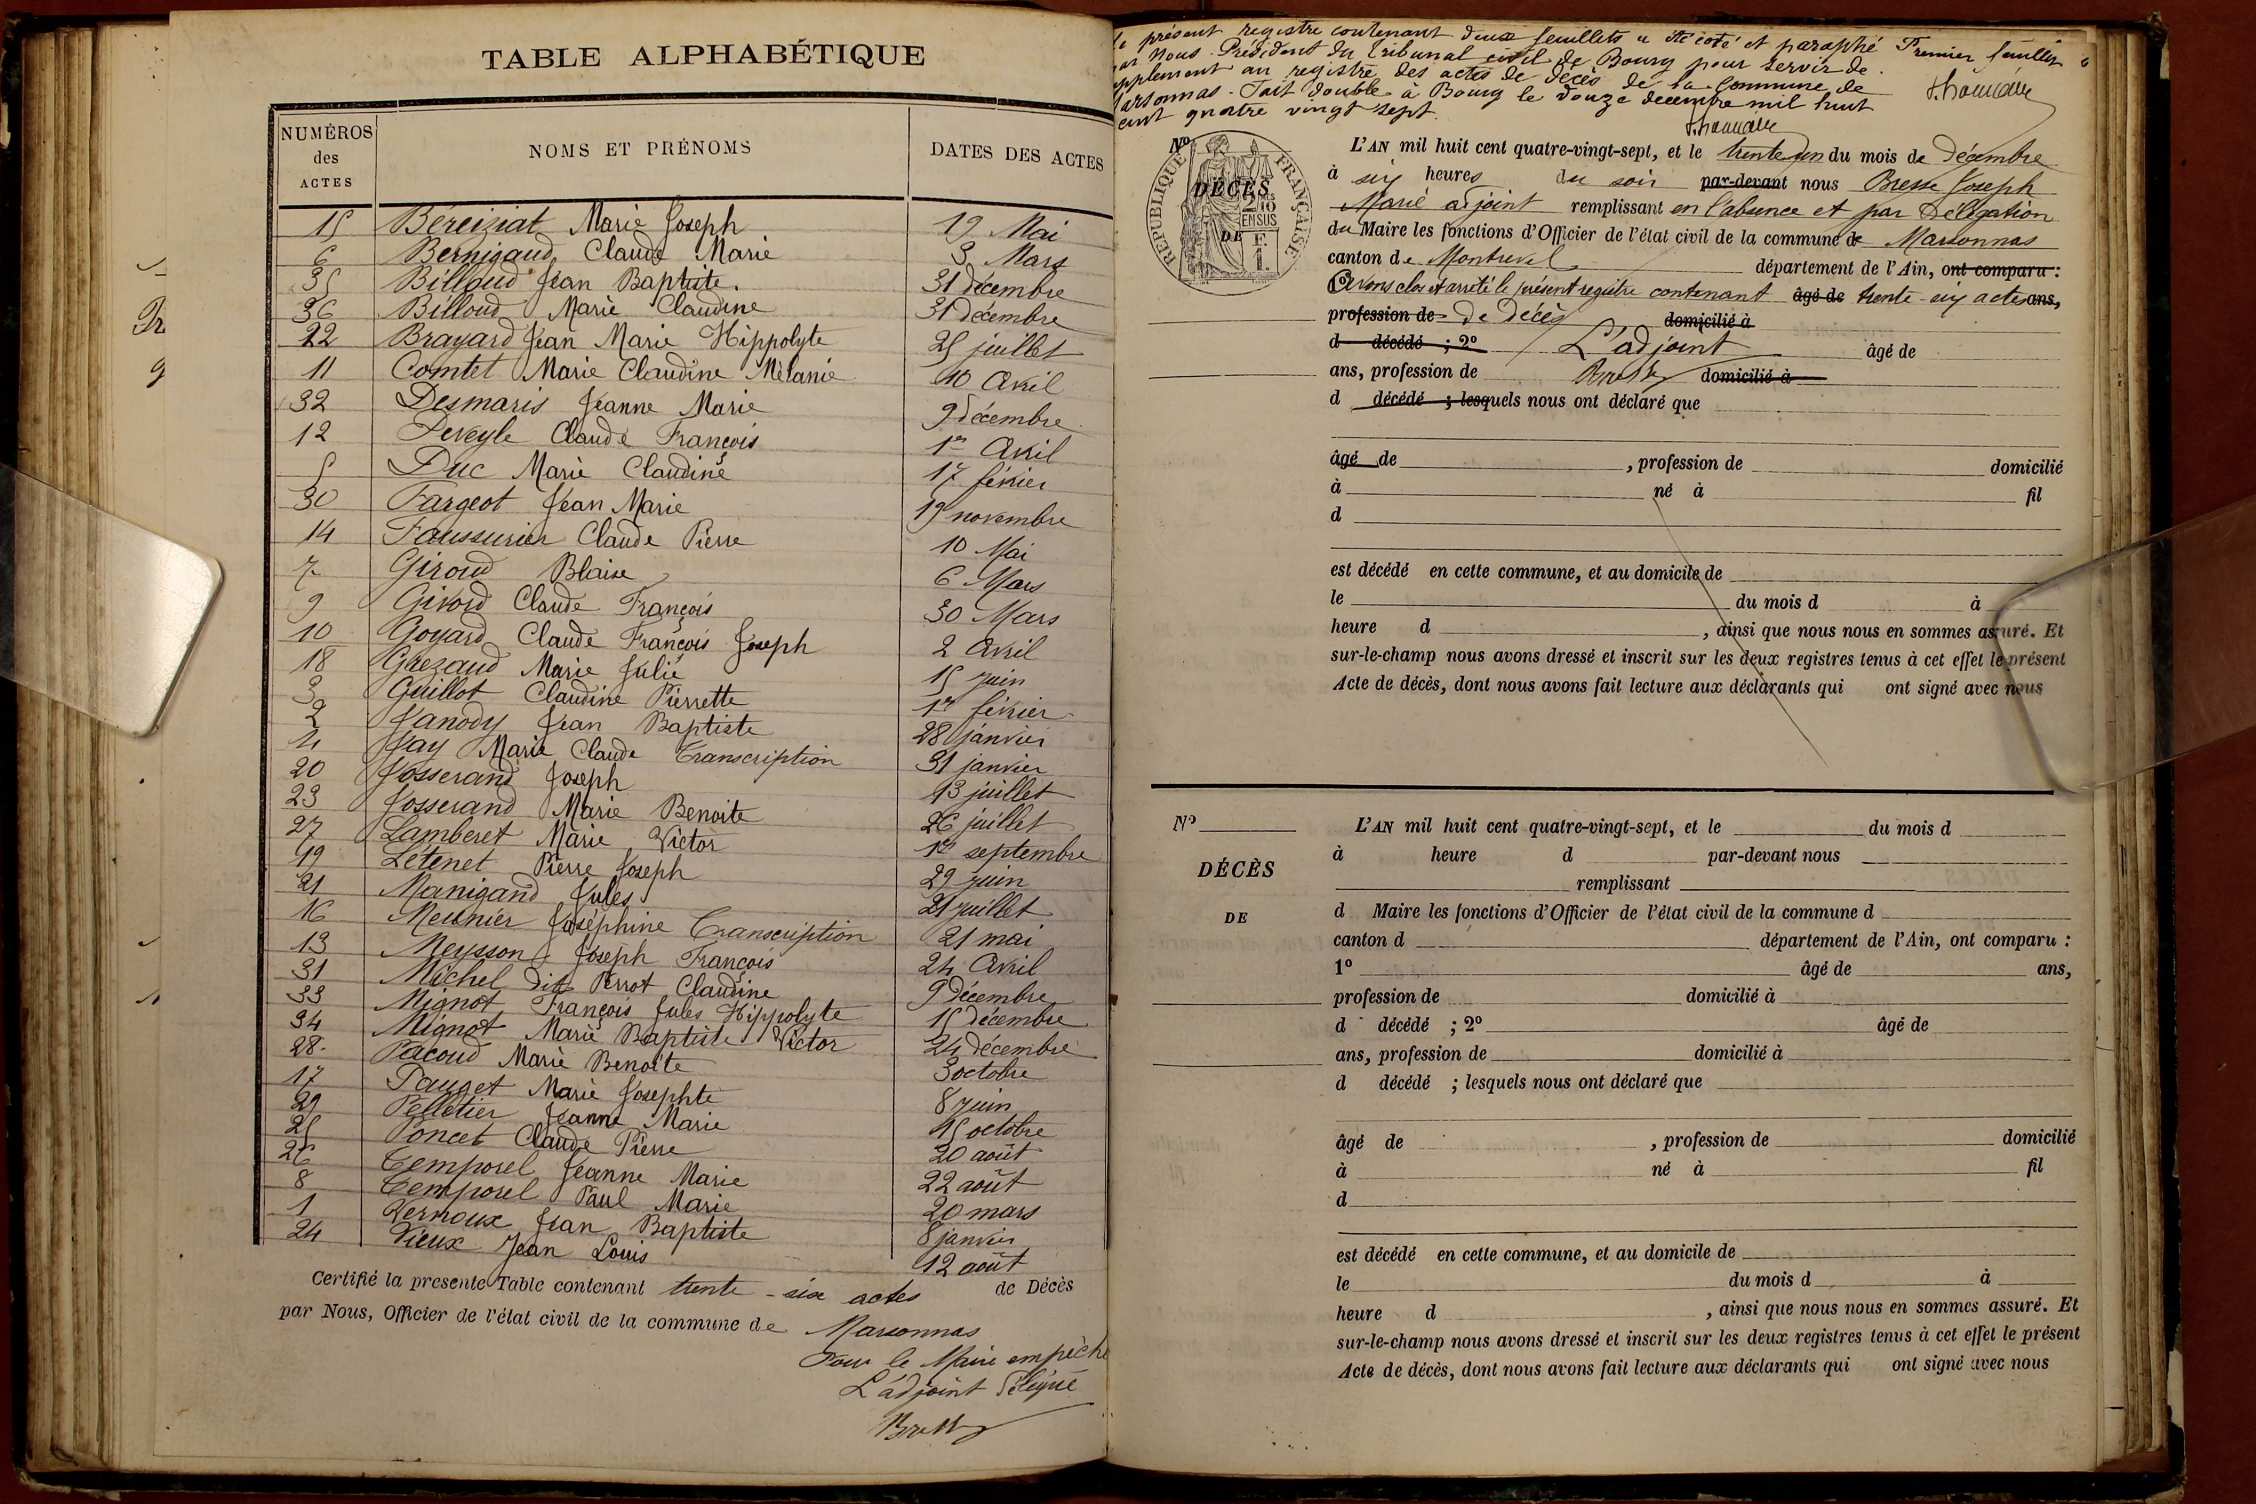 TABLE ALPHABÉTIQUE
NUMÉROS des ACTES NOMS ET PRÉNOMS DATES DES ACTES
15 Béreiziat Marie Joseph 19 Mai
6 Bernigaud Claude Marie 3 Mars
35 Billoud Jean Baptiste. 31 décembre
36 Billoud Marie Claudine 31 décembre
22 Brayard Jean Marie Hippolyte 25 juillet
11 Comtet Marie Claudine Mélanie 10 Avril
32 Desmaris Jeanne Marie 9 décembre
12 Deveyle Claude François 1er Avril
5 Duc Marie Claudine 17 février
30 Fargeot Jean Marie 19 novembre
14 Faussurier Claude Pierre 10 Mai
7 Giroud Blaise 6 Mars
9 Givord Claude François 30 Mars
10 Goyard Claude François Joseph 2 Avril
18 Grezaud Marie Julie 15 juin
3 Guillot Claudine Pierrette 1er février
2 Janody Jean Baptiste 28 janvier
4 Jay Marie Claude Transcription 31 janvier
20 Josserand Joseph 13 juillet
23 Josserand Marie Benoite 26 juillet
27 Lamberet Marie Victor 1er septembre
19 Létenet Pierre Joseph 29 juin
21 Manigand Jules 21 juillet
16 Meunier Joséphine Transcription 21 mai
13 Meysson Joseph François 24 Avril
31 Michel dit Perrot Claudine 9 Décembre
33 Mignot François Jules Hippolyte 15 décembre
34 Mignot Marie Baptiste Victor 24 décembre
28 Pacoud Marie Benoîte 3 octobre
17 Pauget Marie Josephte 8 juin
29 Pelletier Jeanne Marie 15 octobre
25 Poncet Claude Pierre 20 août
26 Temporel Jeanne Marie 22 août
8 Temporel Paul Marie 20 mars
1 Vernoux Jean Baptiste 8 janvier
24 Vieux Jean Louis 12 août
Certifié la presente Table contenant trente-six actes de Décès
par Nous, Officier de l'état civil de la commune de Marsonnas
Pour le Maire empêché
L'adjoint délégué
présent registre contenant deux feuillets a été coté et paraphé Premier feuillet
Nous Président du Tribunal civil de Bourg pour servir de
supplement au registre des actes de décès de la Commune de
Marsonnas - Fait double à Bourg le douze decembre mil huit
cent quatre vingt sept.
No
DÉCÈS
DE
RÉPUBLIQUE FRANÇAISE
2 10es EN SUS
F. 1.
L'AN mil huit cent quatre-vingt-sept, et le trente un du mois de Décembre
à six heures du soir par-devant nous Bresse Joseph
Marie adjoint remplissant en l'absence et par délégation
du Maire les fonctions d'Officier de l'état civil de la commune de Marsonnas
canton de Montrevel département de l'Ain, ont comparu :
Avons clos et arrêté le présent registre contenant âgé de trente-six actes ans,
profession de de Décès domicilié à
d décédé ; 2o L'adjoint âgé de
ans, profession de Bresse domicilié à
d décédé ; lesquels nous ont déclaré que
âgé de , profession de domicilié
à né à fil
d
est décédé en cette commune, et au domicile de
le du mois d à
heure d , ainsi que nous nous en sommes assuré. Et
sur-le-champ nous avons dressé et inscrit sur les deux registres tenus à cet effet le présent
Acte de décès, dont nous avons fait lecture aux déclarants qui ont signé avec nous
No
DÉCÈS
DE
L'AN mil huit cent quatre-vingt-sept, et le du mois d
à heure d par-devant nous
remplissant
d Maire les fonctions d'Officier de l'état civil de la commune d
canton d département de l'Ain, ont comparu :
1o âgé de ans,
profession de domicilié à
d décédé ; 2o âgé de
ans, profession de domicilié à
d décédé ; lesquels nous ont déclaré que
âgé de , profession de domicilié
à né à fil
d
est décédé en cette commune, et au domicile de
le du mois d à
heure d , ainsi que nous nous en sommes assuré. Et
sur-le-champ nous avons dressé et inscrit sur les deux registres tenus à cet effet le présent
Acte de décès, dont nous avons fait lecture aux déclarants qui ont signé avec nous